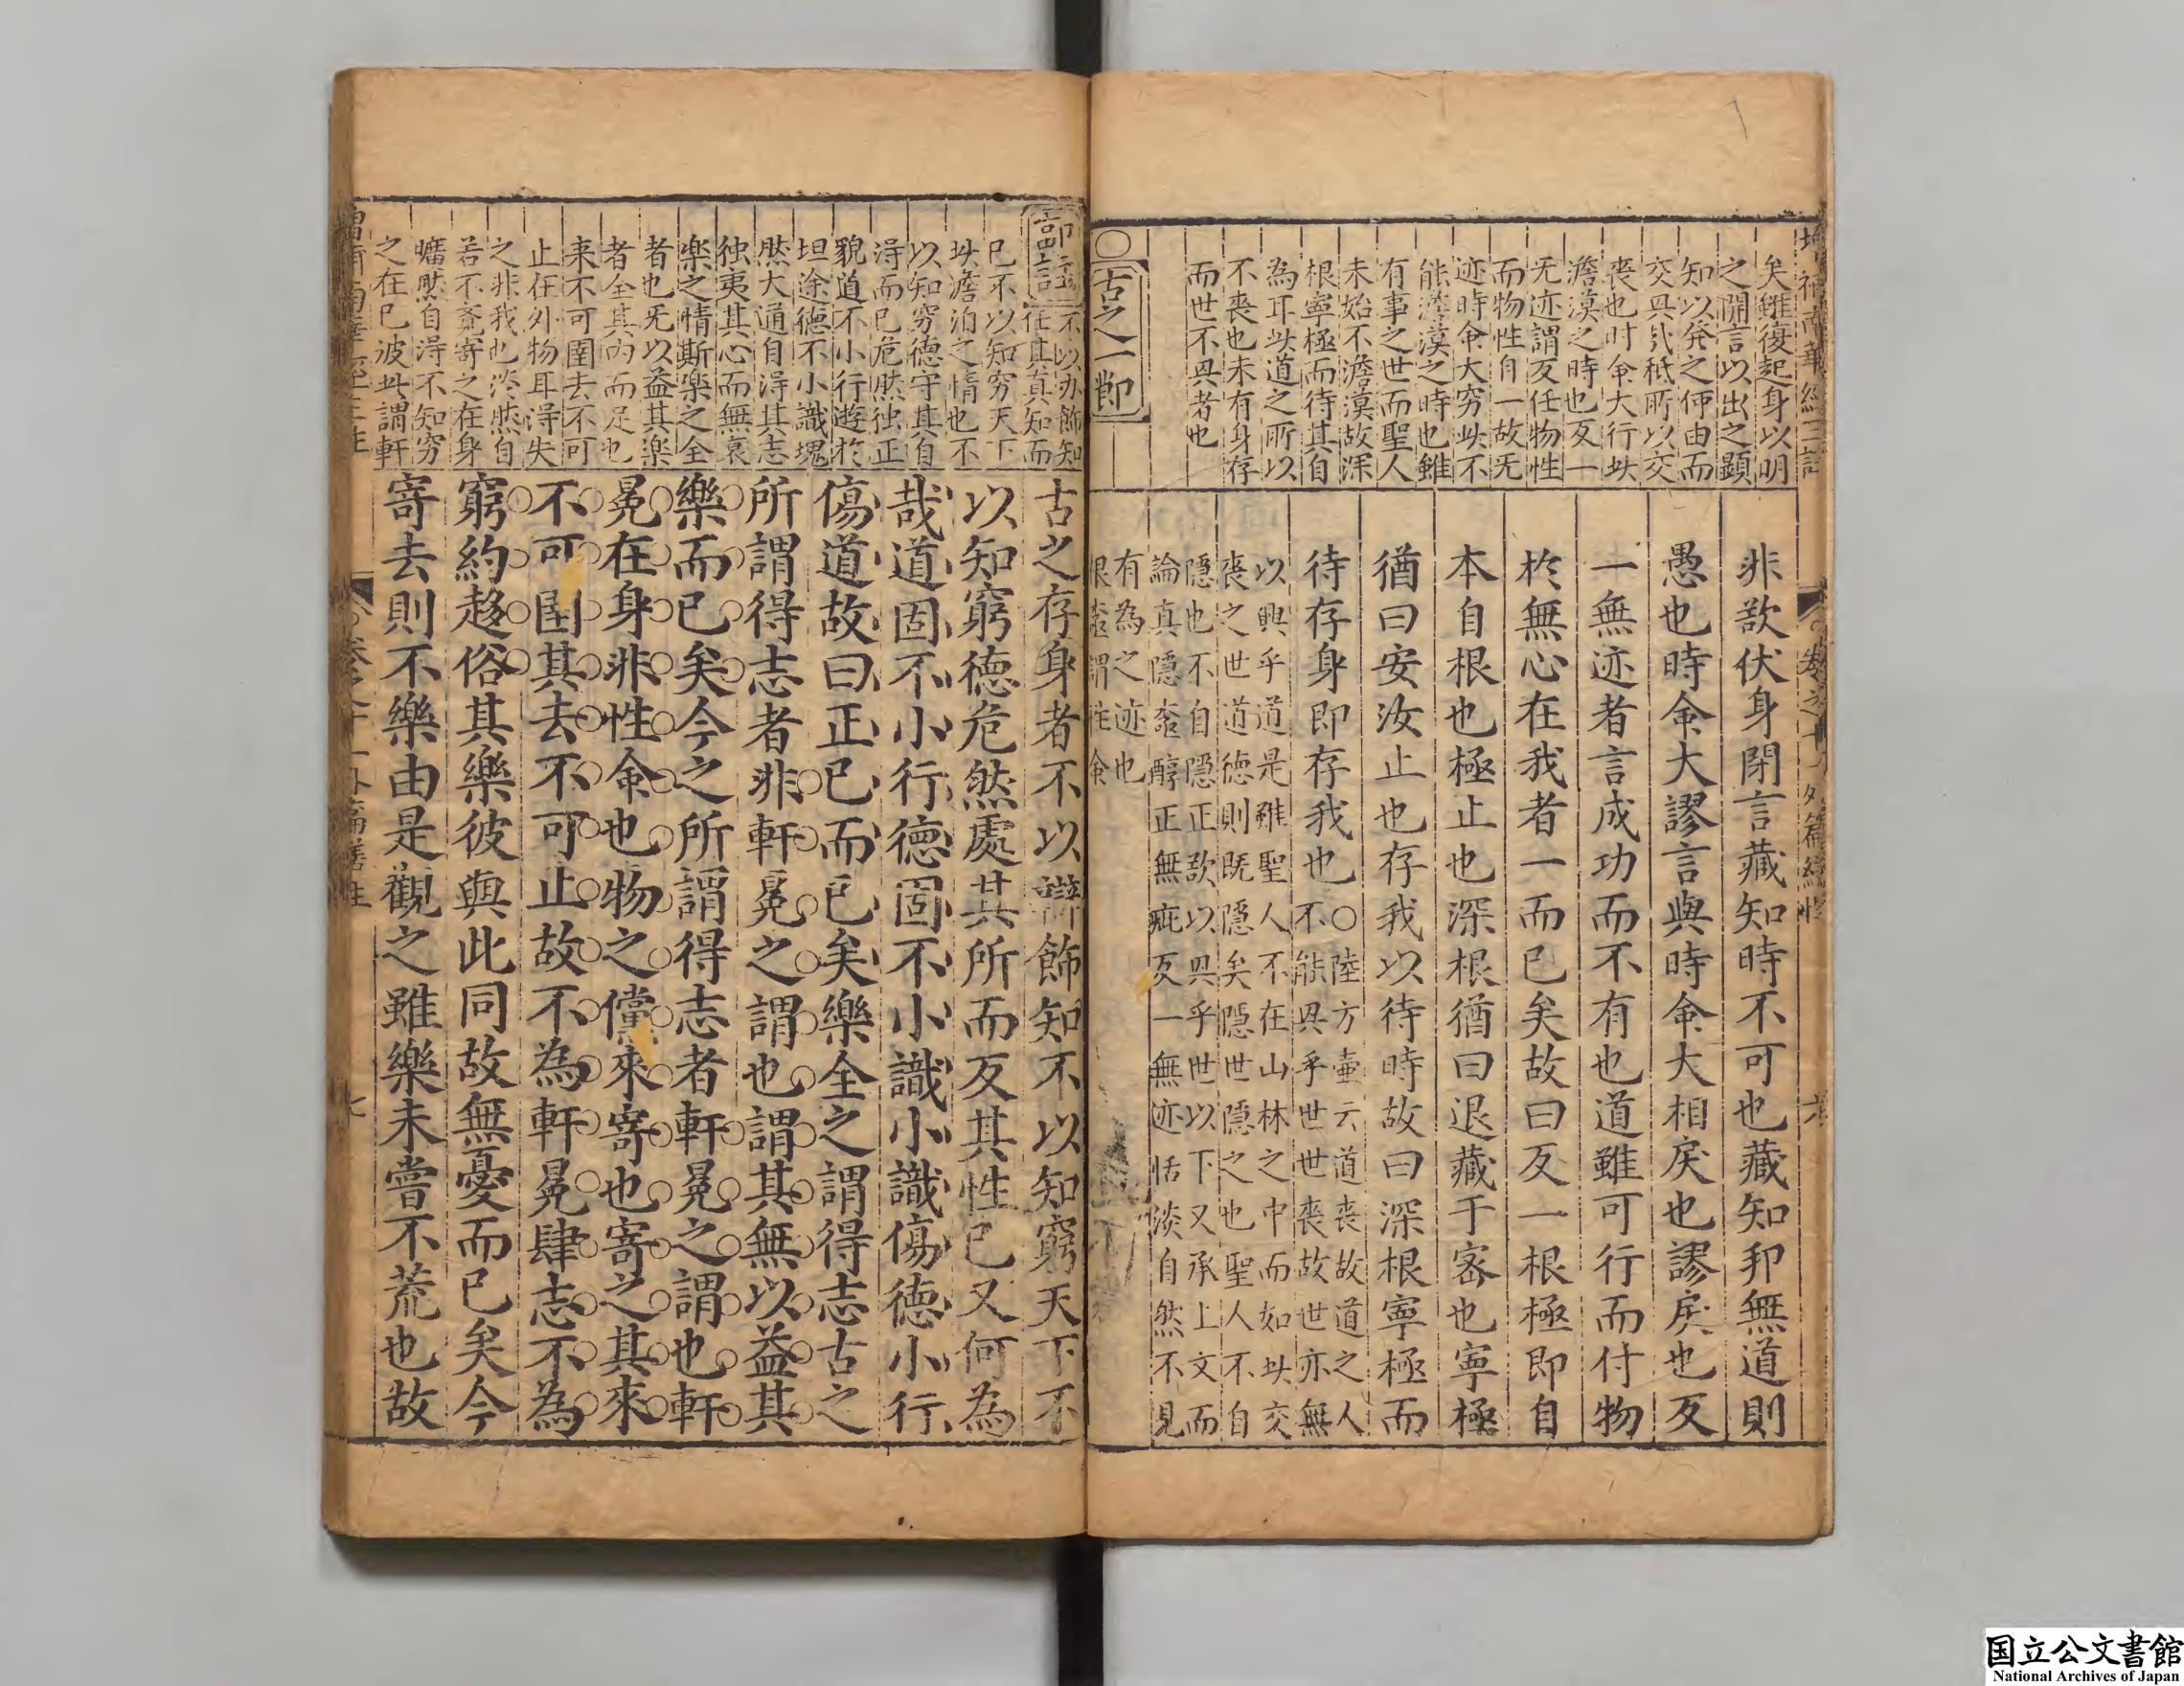 矣雖復起身以明
之開言以出之顯
知以発之何由而
交㒷㢤秪所以交
喪也时命大行㘯
澹漠之時也反一
无迹謂反任物性
而物性自一故无
迹時命大穷㘯不
能澹漠之時也雖
有事之世而聖人
未始不澹漠故深
根寧極而待其自
為耳㘯道之所以
不喪也未有身存
而世不㒷者也
○古之一節
非欲伏身閉言藏知時不可也藏知卽無道則
愚也時命大謬言與時命大相戾也謬戾也反
一無迹者言成功而不有也道雖可行而付物
於無心在我者一而已矣故曰反一根極即自
本自根也極止也深根猶曰退藏于宻也寧極
猶曰安汝止也存我以待時故曰深根寧極而
待存身即存我也○陸方壷云道丧故道之人
不能㒷乎世世丧故世亦無
以興乎道是雖聖人不在山林之中而如㘯交
丧之世道德則既隱矣隱世隱之也聖人不自
隱也不自隱正欲以㒷乎世以下又承上文而
論真隱𫝹醇正無疵反一無迹恬淡自然不見
有為之迹也
根𫝹謂性命
不以办飾知
在其真知而
已不以知穷天下
㘯澹泊之情也不
以知穷德守其自
淂而已危然独正
貌道不小行遊於
坦途德不小識塊
然大通自淂其志
独夷其心而無哀
楽之情斯楽之全
者也旡以益其楽
者全其内而足也
来不可圉去不可
止在外物耳淂失
之非我也淡然自
若不𮗚寄之在身
曠然自淂不知穷
之在已彼㘯謂軒
古之存身者不以辯飾知不以知窮天下不
以知窮德危然處其所而反其性已又何為
哉道固不小行德固不小識小識傷德小行
傷道故曰正已而已矣樂全之謂得志古之
所謂得志者非軒冕之謂也謂其無以益其
樂而已矣今之所謂得志者軒冕之謂也軒
冕在身非性命也物之儻來寄也寄之其來
不可圉其去不可止故不為軒冕肆志不為
窮約趍俗其樂彼與此同故無憂而已矣今
寄去則不樂由是觀之雖樂未嘗不荒也故
国立公文書館
National Archives of Japan